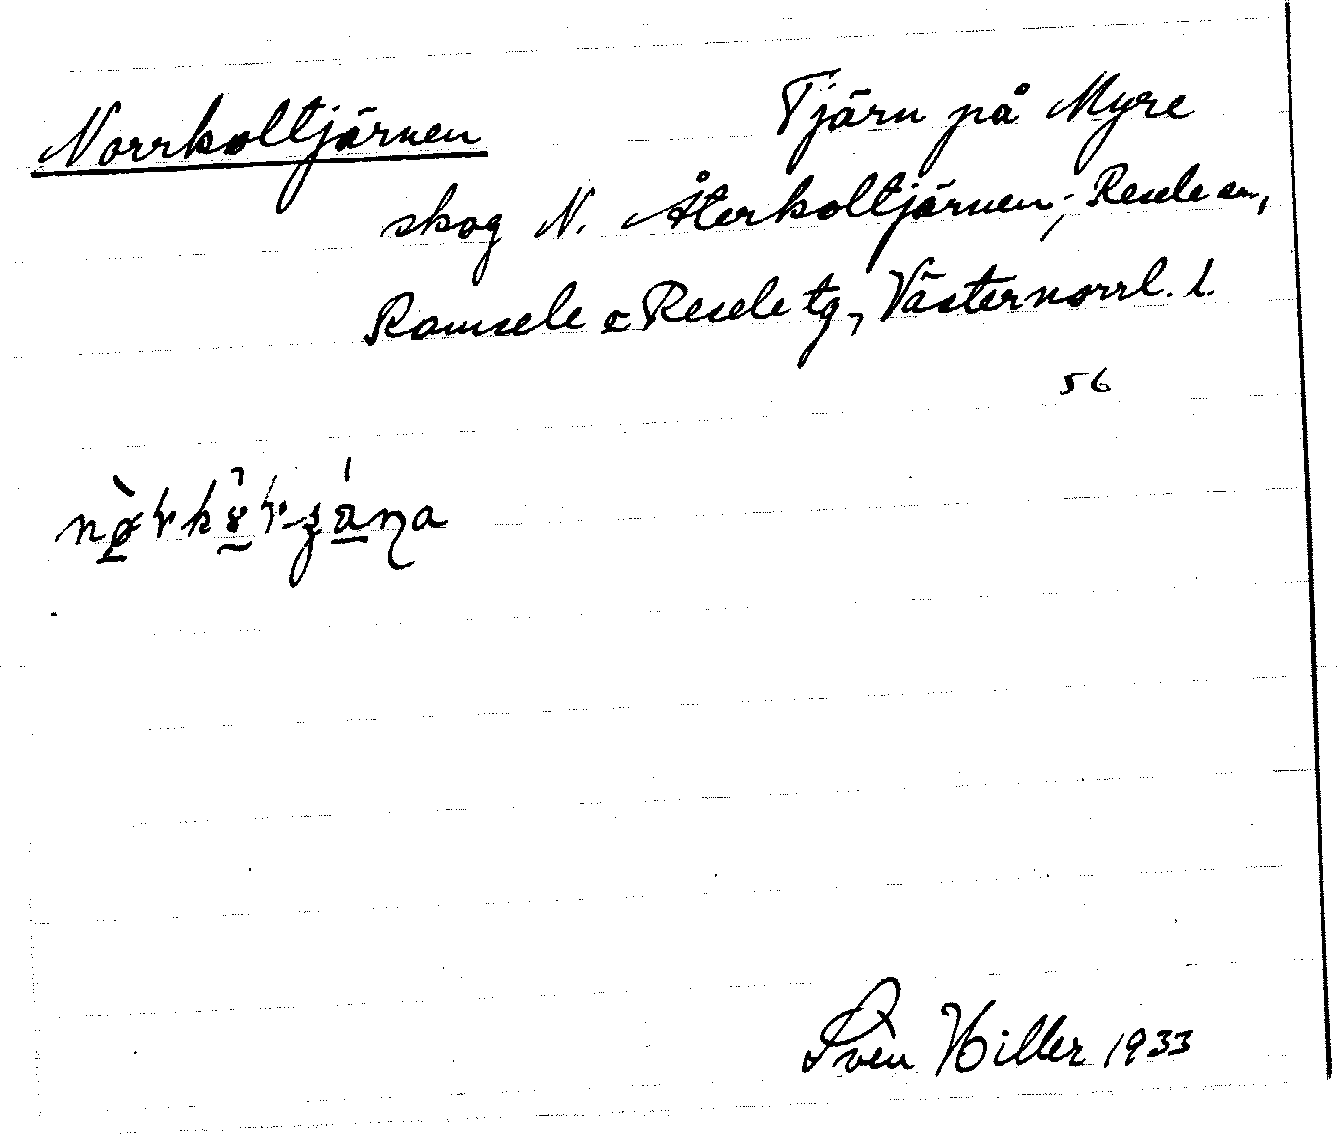 Norrkoltjärnen Tjärn på Myre
skog N. Återkoltjärnen; Resele sn,
Ramsele o Resele tg, Västernorrl. l.
56
Sven Hiller 1933